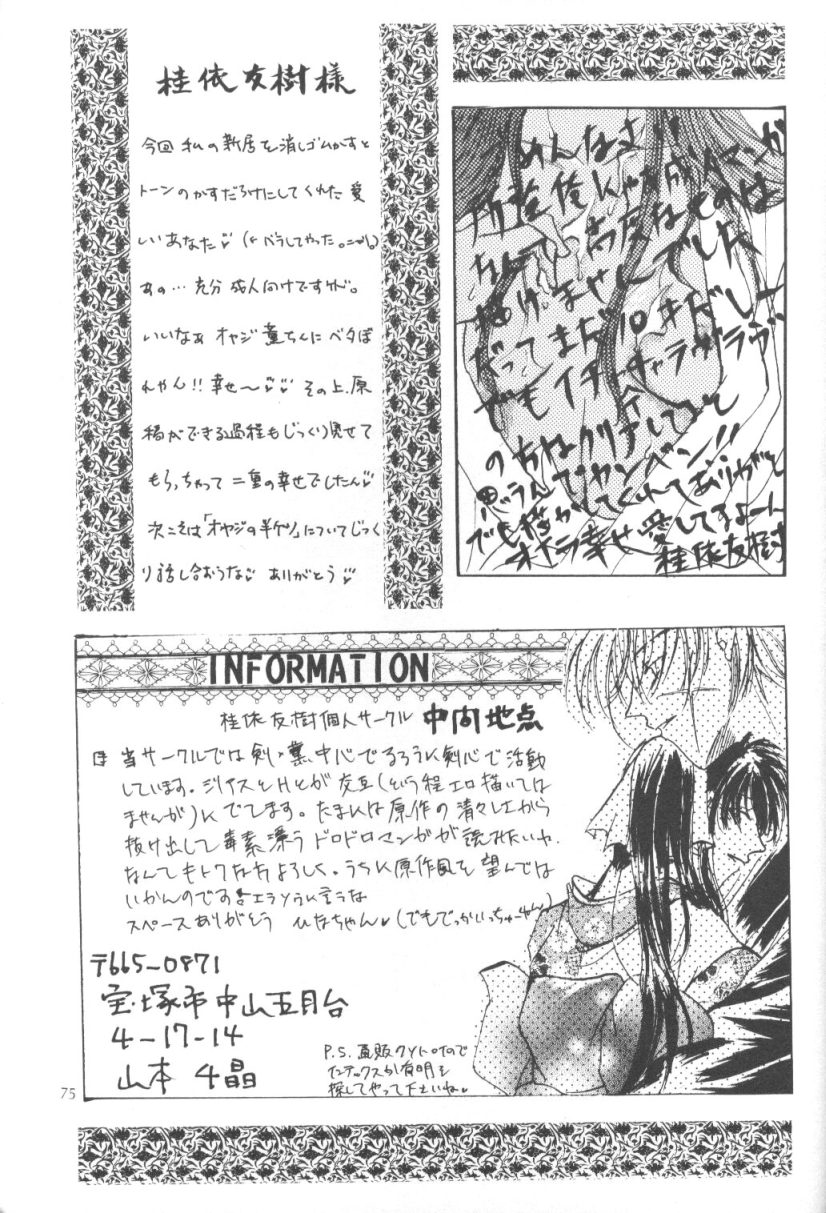 桂依友樹様
今回私の新居を消しゴムかすと
トーンのかすだらけにしてくれた愛
いいあなた
あの…充分成人向けですけど。
いいなぁ オヤジ薫ちんにベタぼ
れやん!!幸せ〜 その上、原
稿ができる過程もじっくり見せて
もらっちゃって 二重の幸せでしたん
次こそは「オヤジの半ケツ」についてじっく
り話し合おうな ありがとう
ごめんなさい
所詮俺にゃ成人マンガ
なんて高度なものは
描けませんでした
だってまだ10才だしー
でもイチャイチャラヴラヴ
でも描かしてくれてありがとう
オイラ幸せ 愛してるよーん
桂依友樹
INFORMATION
桂依友樹個人サークル 中間地点
当サークルでは剣×薫中心でるろうに剣心で活動
しています。シリアスとHとが交互(という程エロ描いては
ませんが)にでてます。たまには原作の清々しエから
抜け出して毒素漂うドロドロマンガが読みたいわ
なんてもトクな方よろしく。うちに原作風を望んでは
いかんのです エラソうに言うな
スペースありがとう ひなちゃん (でもでっかいっちゅーねん)
〒665-0871
宝塚市中山五月台
4-17-14
山本 千晶
P.S. 通販 ナノで
インデックスか有明を
探してやって下さいね
75